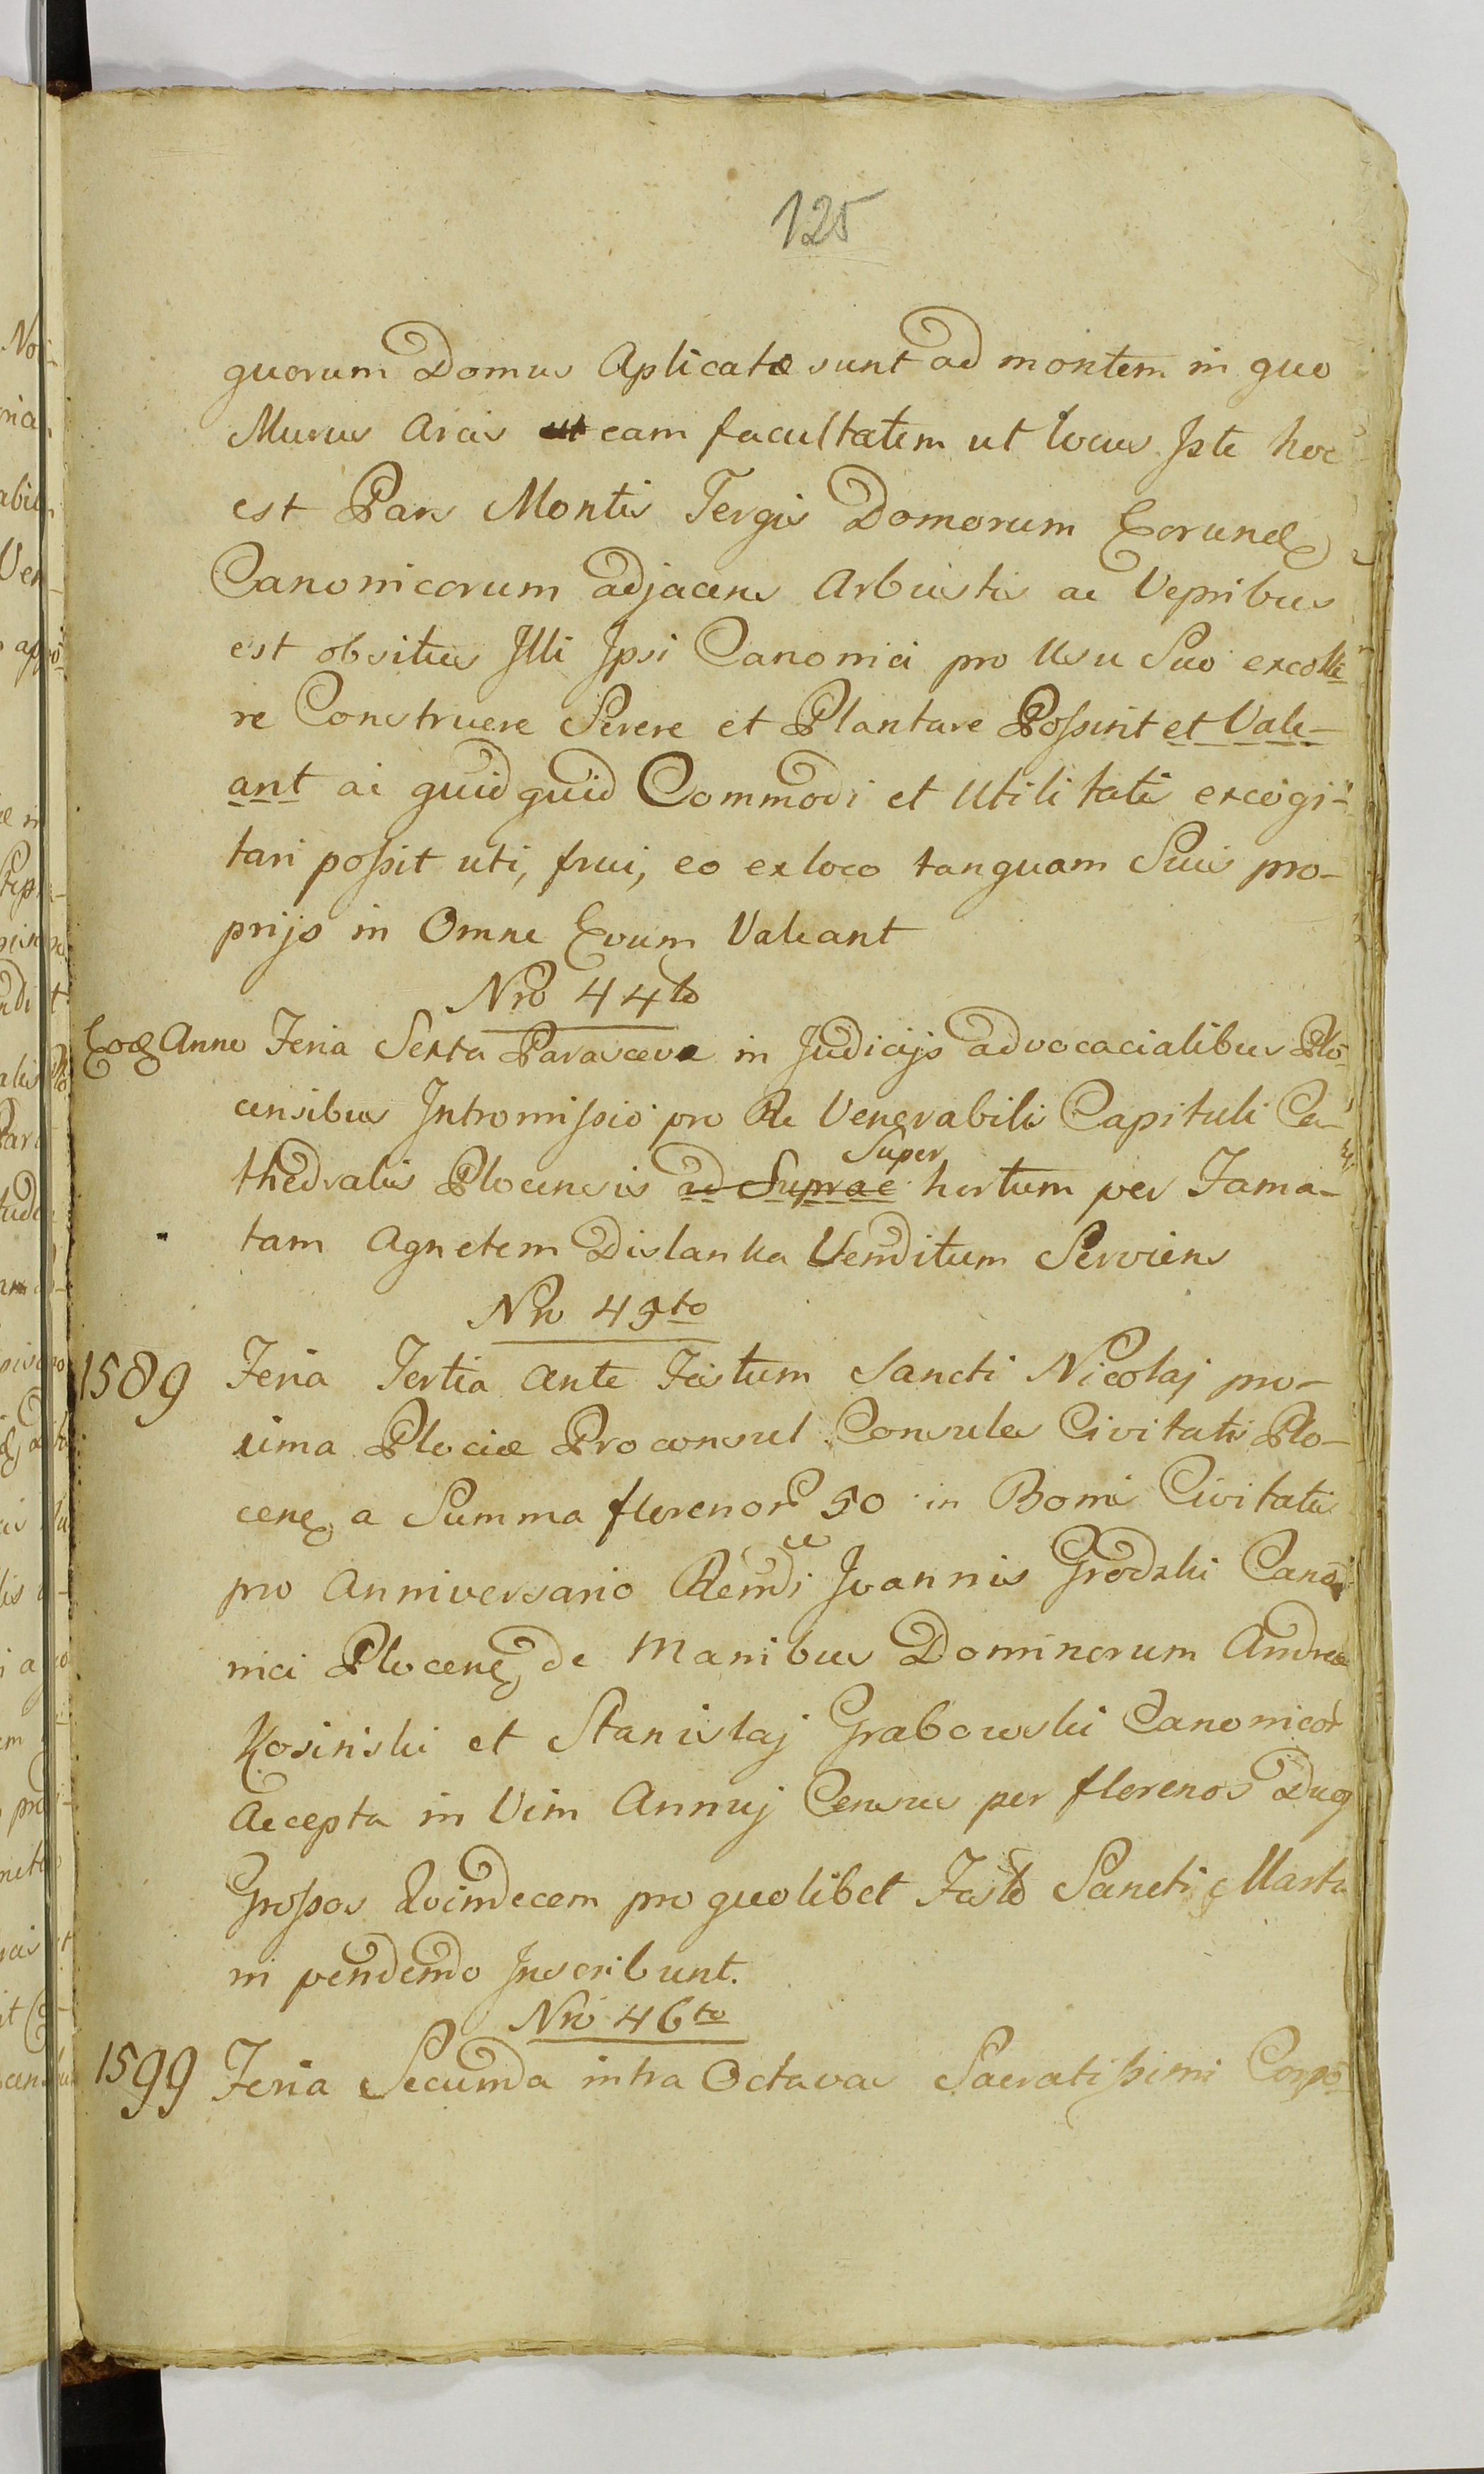 125
quorum Domus Aplicatæ sunt ad montem in quo
Murus Arcis eam facultatem ut locus Iste hoc
est Pars Montis Tergis Domorum Eorund
Canonicorum adjacens Arbustis ac Vepribus
est obsitus Illi Ipsi Canonici pro Usu Suo excolle
re Construere Serere et Plantare Possint et Vale-
ant ac quidquid Commodi et Utilitatis excogi-
tari possit uti, frui, eo ex loco tanquam Suis pro-
prijs in Omne Evum Valeant
Nro 44to
Eod Anno Feria Sexta Parasceve in Judicijs advocacialibus Plo-
censibus Intromissio pro Re Venerabilis Capituli Ca-
thedralis Plocensis ad Suprae Super hortum per Fama-
tam Agnetem Dislanka Venditum Serviens
Nro 45to
1589 Feria Tertia Ante Festum Sancti Nicolaj pro-
xima Plociæ Proconsul Consules Civitatis Plo-
cens a Summa florenor 50 in Bonis Civitatis
pro Anniversario Rendi Joannis Grodzki Cano
nici Plocens de Manibus Dominorum Andreæ
Kosinski et Stanislaj Grabowski Canonicor
Accepta in Vim Annuj Census per florenos Duos
Grossos Quindecem pro quolibet Festo Sancti Marti
ni pendendo Inscribunt.
Nro 46to
1599 Feria Secunda intra Octavas Sacratissimi Corpo-